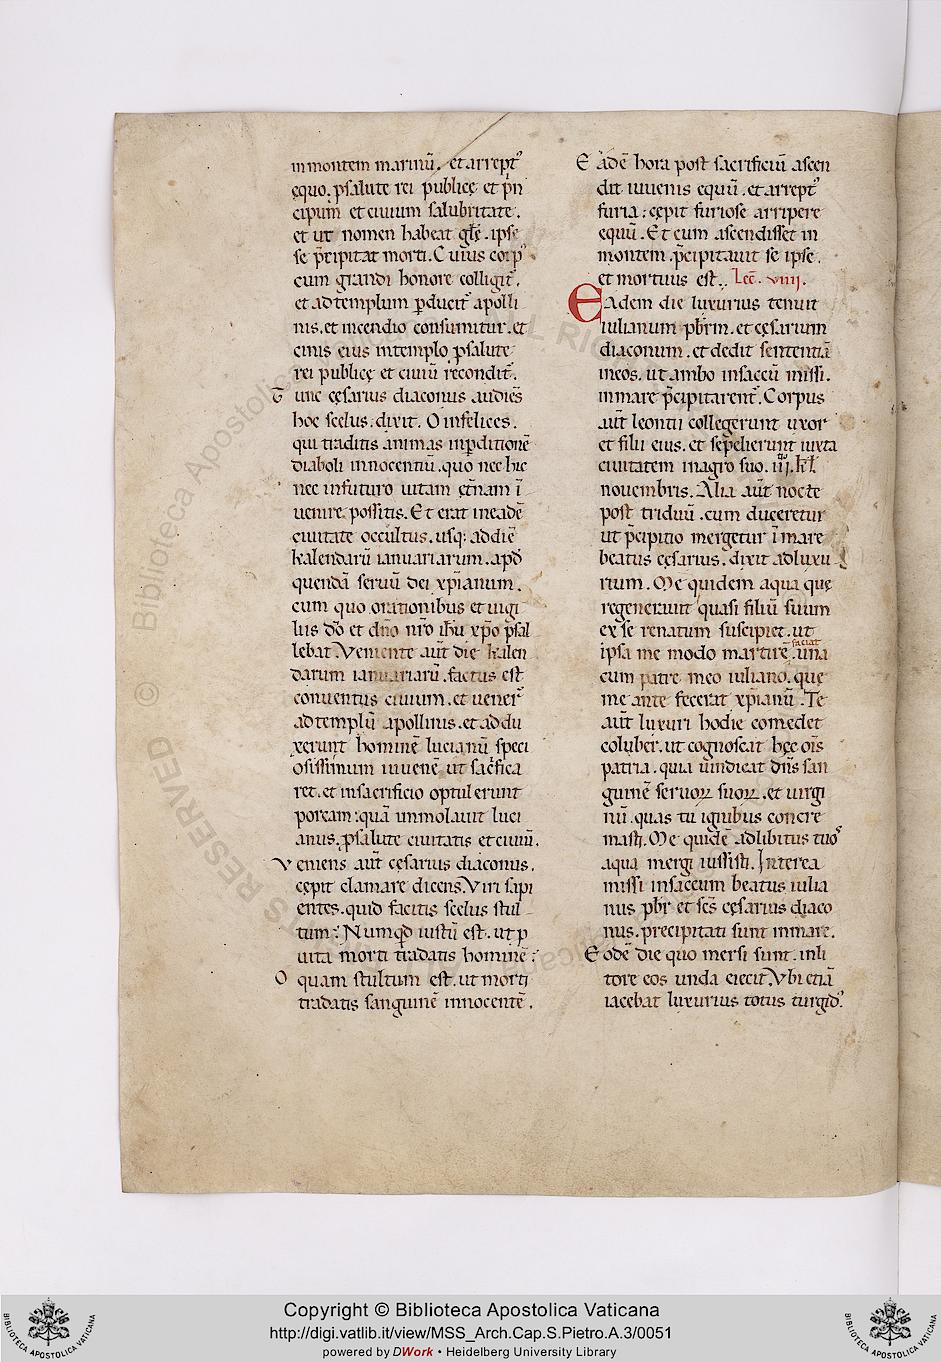 inmontem marinū. et arrept᾽
equo. ꝓsalute rei publicę et p̄n
cipum et ciuium salubritate.
et ut nomen habeat glę. ipse
se p̄cipitat morti. Cuius corp᾽
cum grandi honore colligit᷑.
et adtemplum ꝑducit᷑ apolli
nis. et incendio consumitur. et
cinis eius intemplo ꝓsalute
rei publicę et ciuiū recondit᷑.
Tunc cęsarius diaconus audiēs
hoc scelus. dixit. O infelices.
qui traditis animas inꝑditionē
diaboli innocentiū. quo nec hic
nec infuturo uitam ęt̄nam ī
uenire possitis. Et erat ineadē
ciuitate occultus. usq; addiē
kalendarū ianuariarum. apd̄
quendā seruū dei xp̄ianum.
cum quo orationibus et uigi
liis dō et dn̄o nr̄o ih̄u xp̄o psal
lebat. Veniente aut̄ die kalen
darum ianuariarū. factus est
conuentus ciuium. et uener᷑
adtemplū apollinis. et addu
xerunt hominē lucianū speci
osissimum iuuenē ut sac̄fica
ret. et insacrificio optulerunt
porcam: quā immolauit luci
anus. ꝓsalute ciuitatis et ciuiū.
Veniens aut̄ cęsarius diaconus.
cępit clamare dicens. Viri sapi
entes. quid facitis scelus stul
tum? Numqd̄ iustū est. ut ꝓ
uita morti tradatis hominē?
O quam stultum est. ut morti
tradatis sanguinē innocentē.
Eadē hora post sacrificiū ascen
dit iuuenis equū. et arrept᾽
furia: cępit furiose arripere
equū. Et cum ascendisset in
montem. p̄cipitauit se ipse.
et mortuus est. Lec̄. viiij.
Eadem die luxurius tenuit
iulianum pbr̄m. et cęsarium
diaconum. et dedit sententiā
ineos. ut ambo insaccū missi.
inmare p̄cipitarent᷑. Corpus
aut̄ leontii collegerunt uxor
et filii eius. et sepelierunt iuxta
ciuitatem inagro suo. iiij. kł
nouembris. Alia aut̄ nocte
post triduū. cum duceretur
ut p̄cipitio mergetur ī mare
beatus cęsarius. dixit adluxu
rium. Me quidem aqua quę
regenerauit quasi filiū suum
ex se renatum suscipiet. ut
faciat
ipsa me modo martirē. una
cum patre meo iuliano. quę
me ante fecerat xp̄ianū. Te
aut̄ luxuri hodie comedet
coluber. ut cognoscat hęc om̄s
patria. quia uindicat dn̄s san
guinē seruoꝝ suoꝝ. et uirgi
nū. quas tu ignibus concre
masti. Me quidē adlibitus tuo᷑
aqua mergi iussisti. Interea
missi insaccum beatus iulia
nus pbr̄ et sc̄s cęsarius diaco
nus. precipitati sunt inmare.
Eodē die quo mersi sunt. inli
tore eos unda eiecit. Vbi etiā
iacebat luxurius totus turgid᾽.
Copyright © Biblioteca Apostolica Vaticana
http://digi.vatlib.it/view/MSS_Arch.Cap.S.Pietro.A.3/0051
powered by DWork • Heidelberg University Library